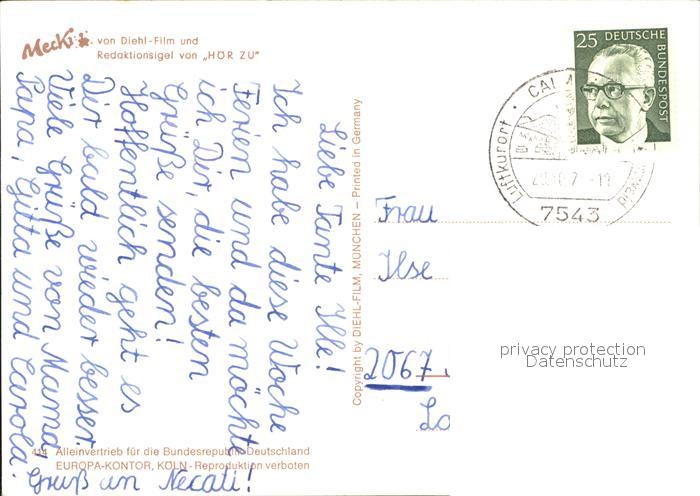 Mecki von Diehl-Film und
Redaktionsigel von „HÖR ZU"
Liebe Tante Ille!
Ich habe diese Woche
Ferien und da möchte
ich Dir, die besten
Grüße senden!
Hoffentlich geht es
Dir bald wieder besser.
Viele Grüße von Mama,
Papa, Gitta und Carola.
Gruß an Necati!
Alleinvertrieb für die Bundesrepublik Deutschland
EUROPA-KONTOR, KÖLN - Reproduktion verboten
Copyright by DIEHL-FILM, MÜNCHEN – Printed in Germany
25 DEUTSCHE
BUNDESPOST
Luftkurort
7543
Frau
Ilse
2067
privacy protection
Datenschutz